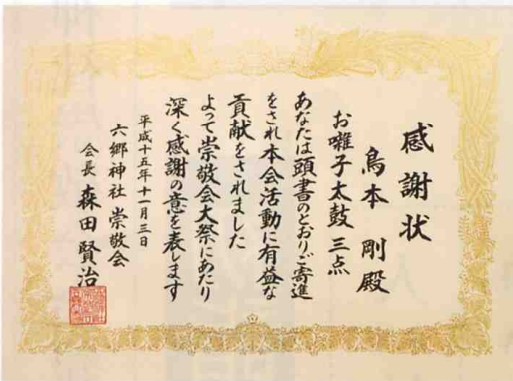 感謝状
鳥本 剛 殿
お囃子太鼓 三点
あなたは頭書のとおりご寄進
をされ本会活動に有益な
貢献をされました
よって崇敬会大祭にあたり
深く感謝の意を表します
平成十五年十一月三日
六郷神社 崇敬会
会長 森田賢治